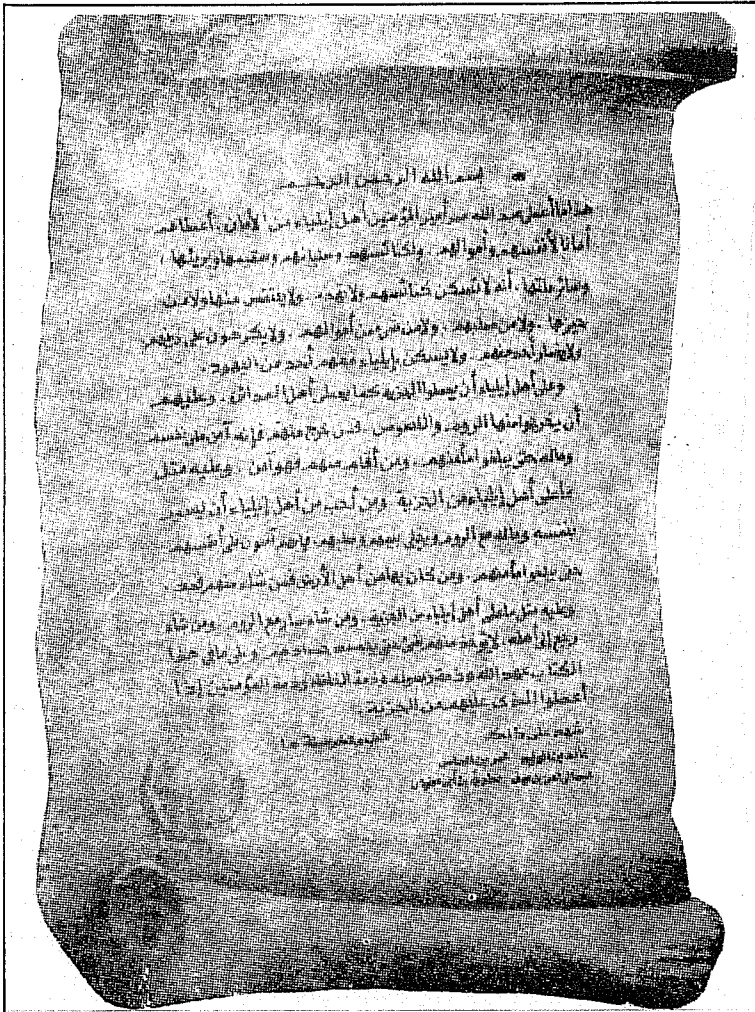 بسم الله الرحمن الرحيم
هذا ما أعطى عبد الله عمر أمير المؤمنين أهل إيلياء من الأمان . أعطاهم
أمانا لأنفسهم وأموالهم . ولكنائسهم وصلبانهم وسقيمها وبريئها
وسائر ملتها . أنه لا تسكن كنائسهم ولا تهدم . ولا ينتقص منها ولا من
حيزها . ولا من صليبهم . ولا من شيء من أموالهم . ولا يكرهون على دينهم
ولا يضار أحد منهم . ولا يسكن بإيلياء معهم أحد من اليهود .
وعلى أهل إيلياء أن يعطوا الجزية كما يعطي أهل المدائن . وعليهم
أن يخرجوا منها الروم واللصوص . فمن خرج منهم فإنه آمن على نفسه
وماله حتى يبلغوا مأمنهم . ومن أقام منهم فهو آمن . وعليه مثل
ما على أهل إيلياء من الجزية . ومن أحب من أهل إيلياء أن يسير
بنفسه وماله مع الروم ويخلي بيعهم وصلبهم فإنهم آمنون على أنفسهم
حتى يبلغوا مأمنهم . ومن كان بها من أهل الأرض فمن شاء منهم قعد .
وعليه مثل ما على أهل إيلياء من الجزية . ومن شاء سار مع الروم . ومن شاء
رجع إلى أهله . لا يؤخذ منهم شيء حتى يحصد حصادهم . وعلى ما في هذا
الكتاب عهد الله وذمة رسوله وذمة الخلفاء وذمة المؤمنين إذا
أعطوا الذي عليهم من الجزية .
شهد على ذلك
خالد بن الوليد عمرو بن العاص
عبد الرحمن بن عوف معاوية بن أبي سفيان